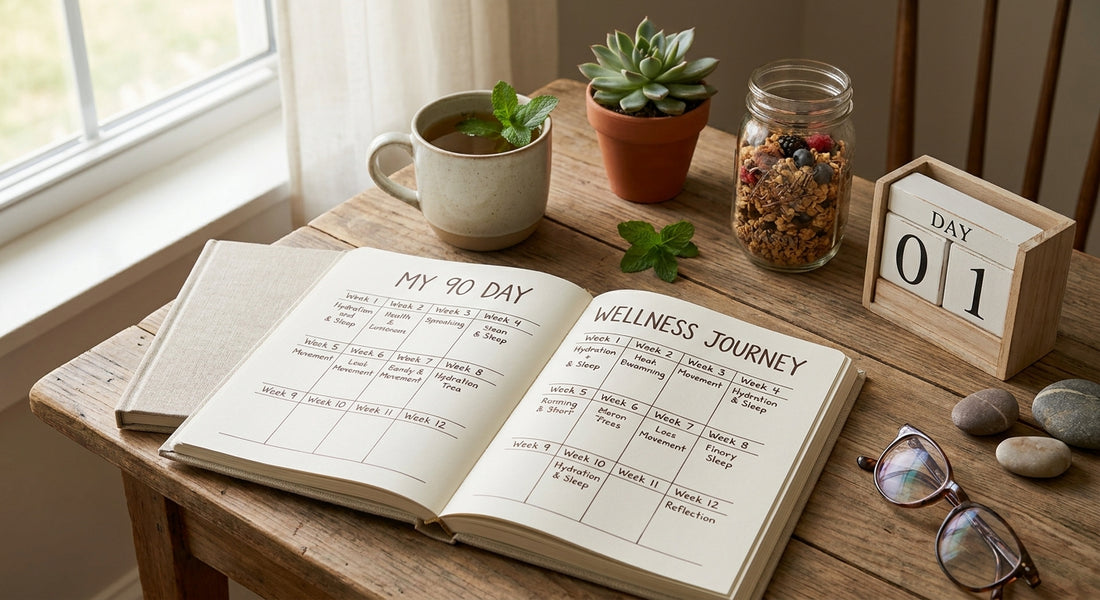 MY 90 DAY
Week 1 Week 2 Week 3 Week 4
Hydration and & Sleep
Health &
Week 5 Week 6 Week 7 Week 8
Movement
Movement
& Movement
Hydration
Week 9 Week 10 Week 11 Week 12
WELLNESS JOURNEY
Week 1 Week 2 Week 3 Week 4
Hydration & Sleep
Movement
Hydrntion & Sleep
Week 5 Week 6 Week 7 Week 8
Movement
Finory Sleep
Week 9 Week 10 Week 11 Week 12
Hydration & Sleep
Reflection
DAY
01